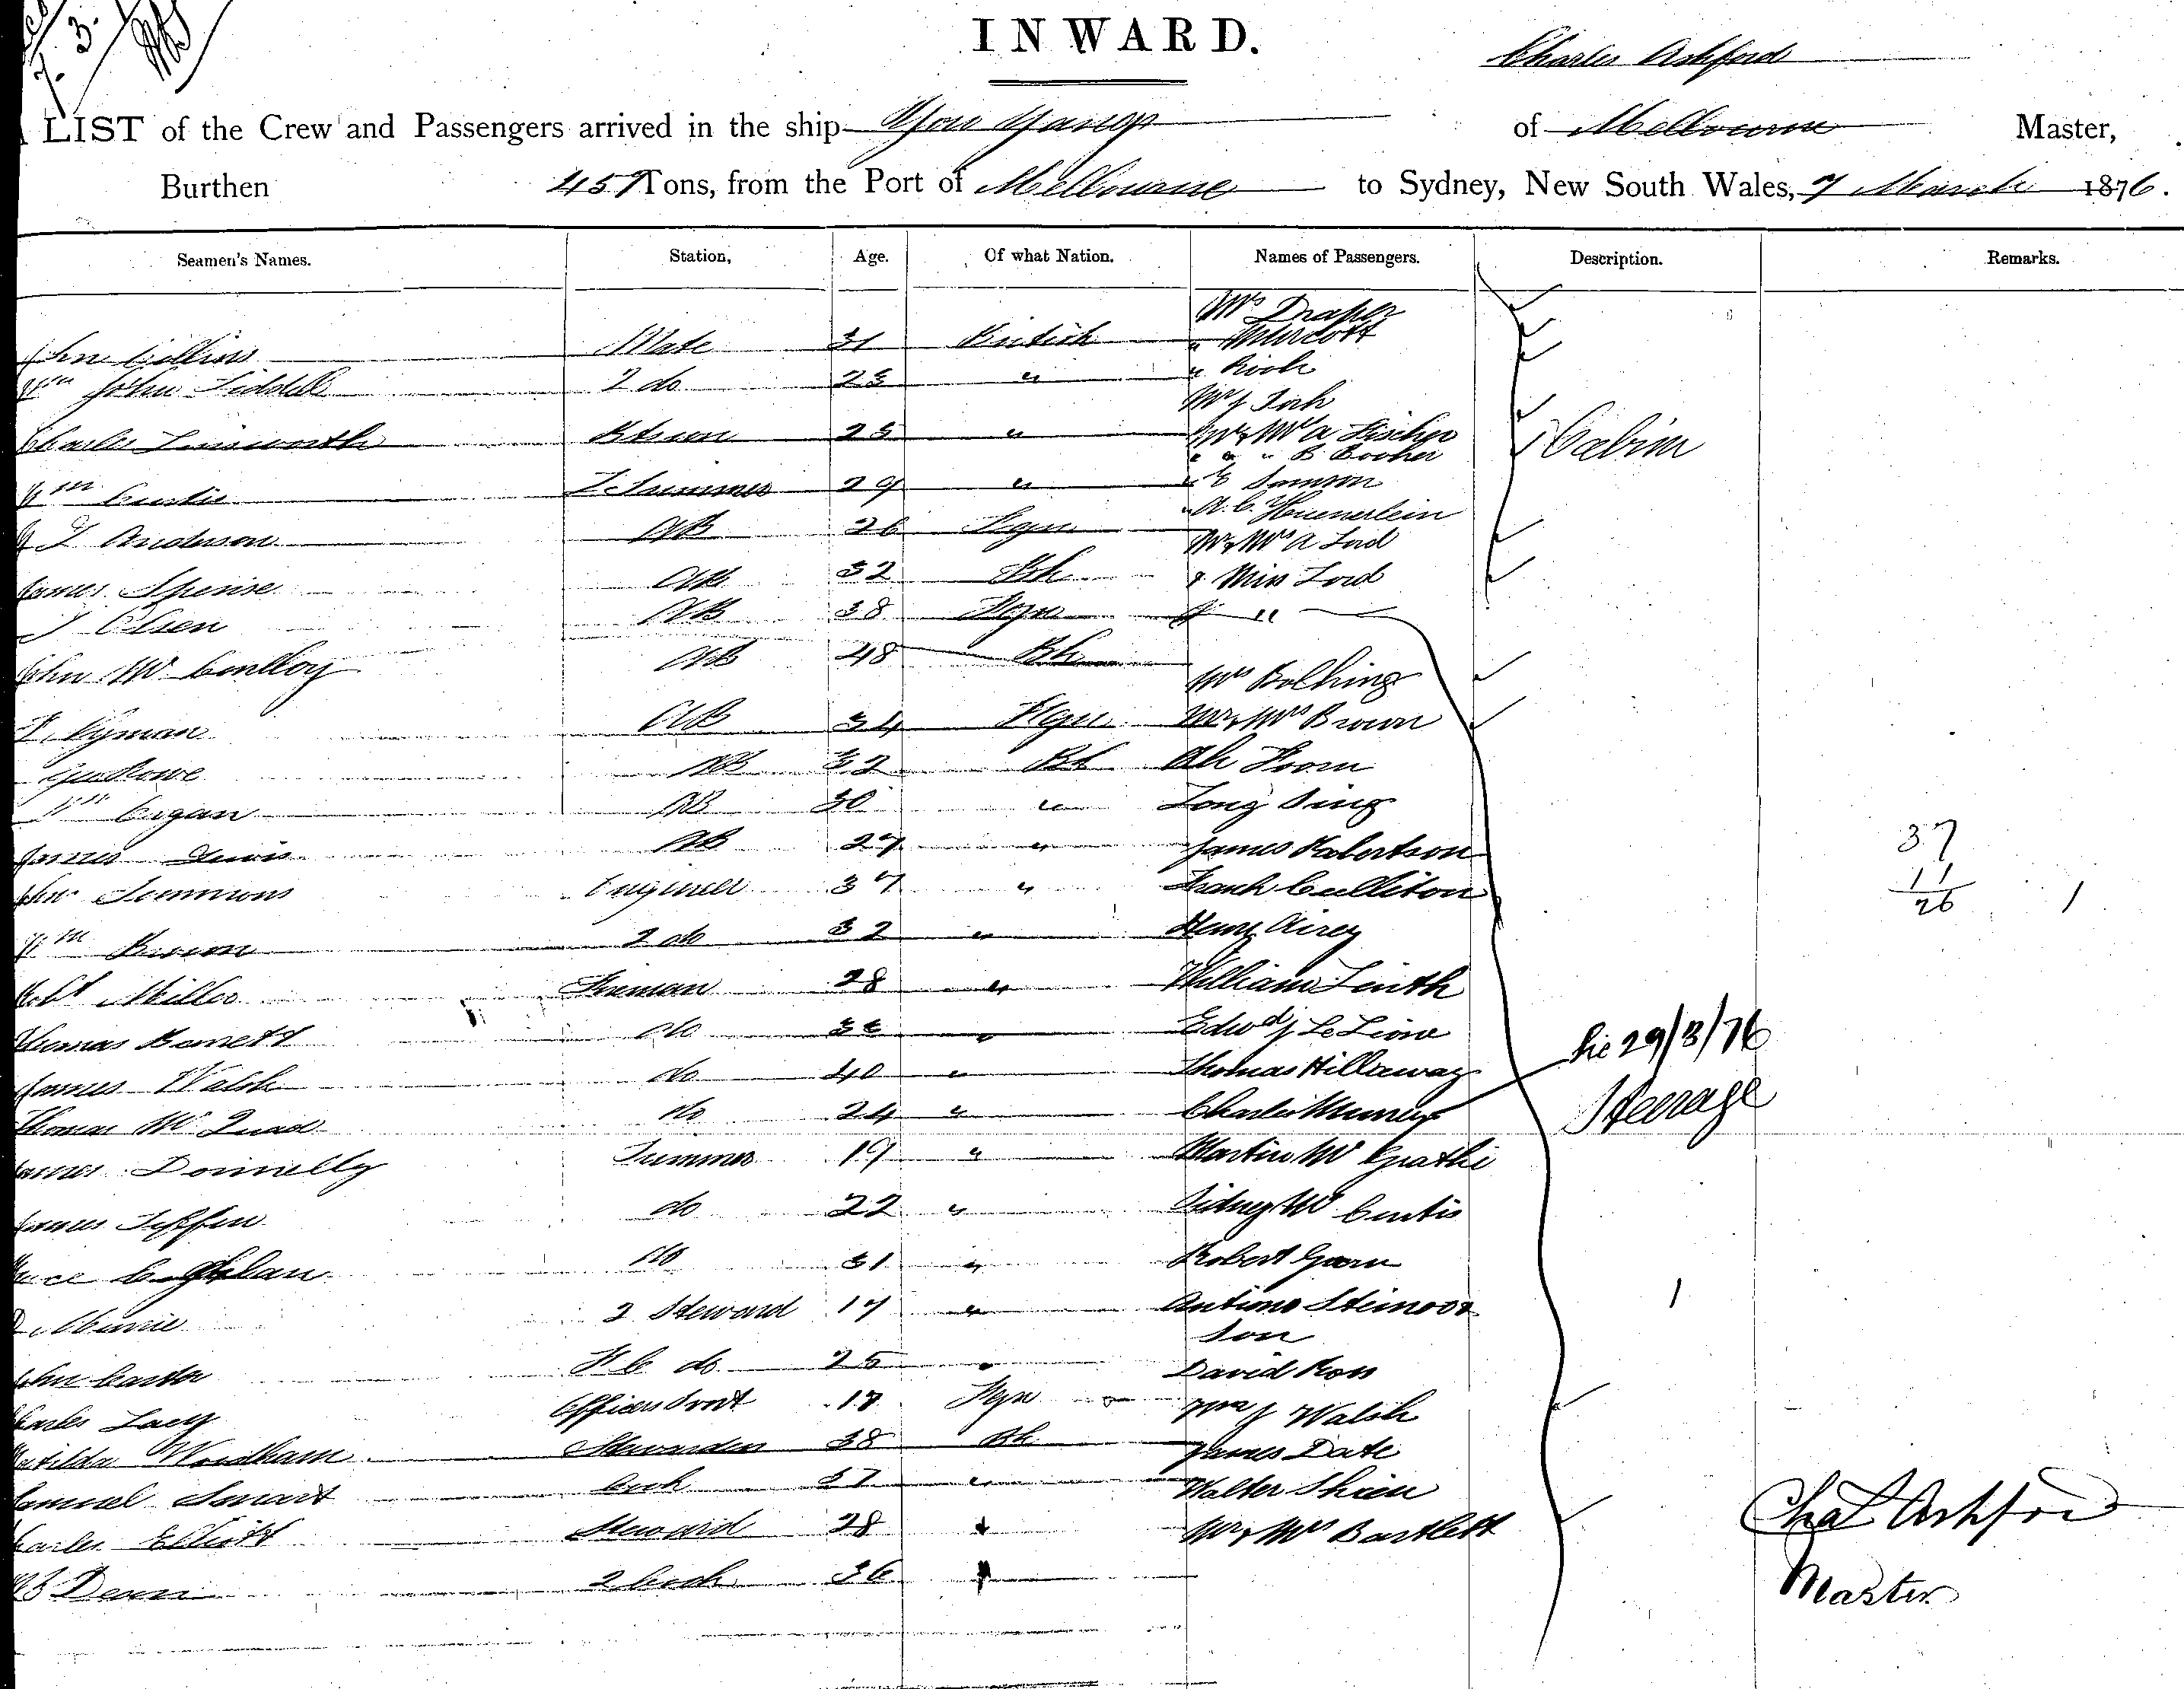 INWARD.
Charles Ashford
LIST of the Crew and Passengers arrived in the ship You Yangs of Melbourne Master,
Burthen 457 Tons, from the Port of Melbourne to Sydney, New South Wales, 7 March 1876.
Seamen's Names. Station, Age. Of what Nation. Names of Passengers. Description. Remarks.
Mrs Draper
John Collins Mate 31 British "
Wm John Liddell 2 do 23 "
Mr J
Charles 25 " Mr & Mrs A Fischer Cabin
" " " B Booher
Wm Curtis 29 " " E Samson
" A. C. Heunerlein
Anderson AB 26 Fgn Mr & Mrs A Lord
James Spense AB 32 Bh & Miss Lord
J Olsen AB 38 Fgn "
John Mc AB 48 Bh
Mrs
Nyman AB 34 Fgn Mr & Mrs Brown
Rowe AB 32 Bh Ah Foom
Wm Cigan AB 30 " Long Sing
James Lewis AB 27 " James Robertson
37
11
26
John Simmons Engineer 37 " Frank Culliton
Wm Brown 2 do 32 " Henry Airey
Robt Miller Fireman 28 " William Leith
Thomas Barrett do " Edwd J Le Lion
29/3/76
James Walsh do 40 " Thomas Hillaway
Thomas Mc do 24 " Charles Murray Steerage
James Donnelly Trimmer 19 " Martin Mc Grath
James Tiffin do 22 " Sidney Mc Curtis
do 31 " Robert
2 Steward 17 " Antione
son
John Carter F C do 25 " David Ross
Charles Lacy Officers Srvt 17 Fgn Wm J Walsh
Matilda Woodham Stewardess 38 Bh James Date
Samuel Smart Cook 37 " Walter
Charles Elliott Steward 28 " Mr & Mrs Bartlett
2 Cook 36 "
Chas Ashford
Master